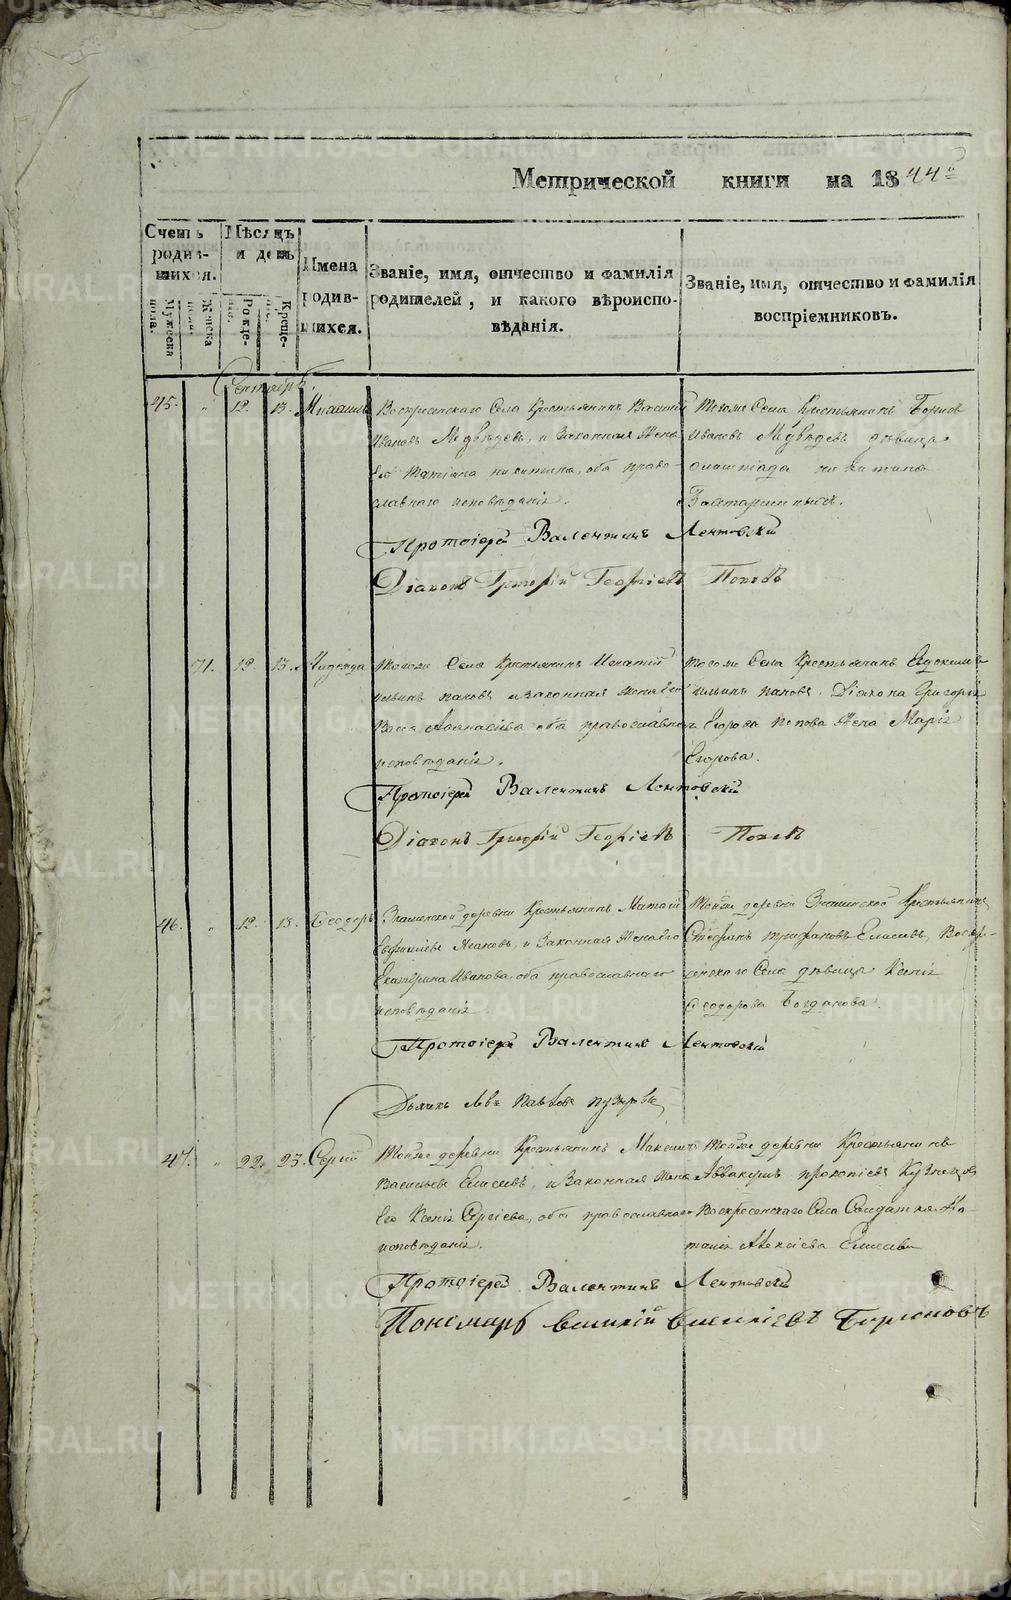 Метрической книги на 1844й
Счетъ родив-
шихся.
Мужеска пола.
Женска пола.
Мѣсяцъ и день
Рожде-
Креще-
Имена родив-
шихся.
Званіе, имя, отчество и фамилія
родителей, и какого вѣроиспо-
вѣданія.
Званіе, имя, отчество и фамилія
воспріемниковъ.
Сентябрь.
45. " 12. 13. Михаилъ
Воскресенскаго Села Крестьянинъ Василий
Ивановъ Медвѣдевъ, и Законная Жена
Его Татіана Никитина, оба право-
славнаго исповѣданія.
Тогоже Села Крестьянинъ
Ивановъ Медвѣдевъ дѣвица
Никитина
Протоіерей Валентинъ Лентовскій
Діаконъ Григорій Георгіевъ Поповъ
71. 12. 13. Надежда
Тогоже Села Крестьянинъ Игнатий
и законная жена его
оба православнаго
исповѣданія.
Тогоже Села Крестьянинъ Евдокимъ
Діакона Григорія
Егорова Попова Жена Марія
Егорова.
Протоіерей Валентинъ Лентовскій
Діаконъ Григорій Георгіевъ Поповъ
46. " 12. 13. Феодоръ
деревни Крестьянинъ
и Законная Жена Его
Екатерина Иванова, оба православнаго
исповѣданія.
Тойже деревни Крестьянинъ
Стефанъ Трифановъ Елисеевъ, Воскре-
сенскаго Села дѣвица Ксенія
Феодорова Богданова.
Протоіерей Валентинъ Лентовскій
Дьячекъ Левъ Павловъ Пузыревъ
47. " 22. 23. Сергій
Тойже деревни Крестьянинъ Максимъ
Васильевъ Елисеевъ, и Законная Жена
Его Ксенія Сергіева, оба православнаго
исповѣданія.
Тойже деревни Крестьянинъ
Аввакумъ Прокопіевъ Кузнецов
Воскресенскаго Села Солдатка На-
талія Алексіева Елисеева
Протоіерей Валентинъ Лентовскій
Пономарь Василій
METRIKI.GASO-URAL.RU